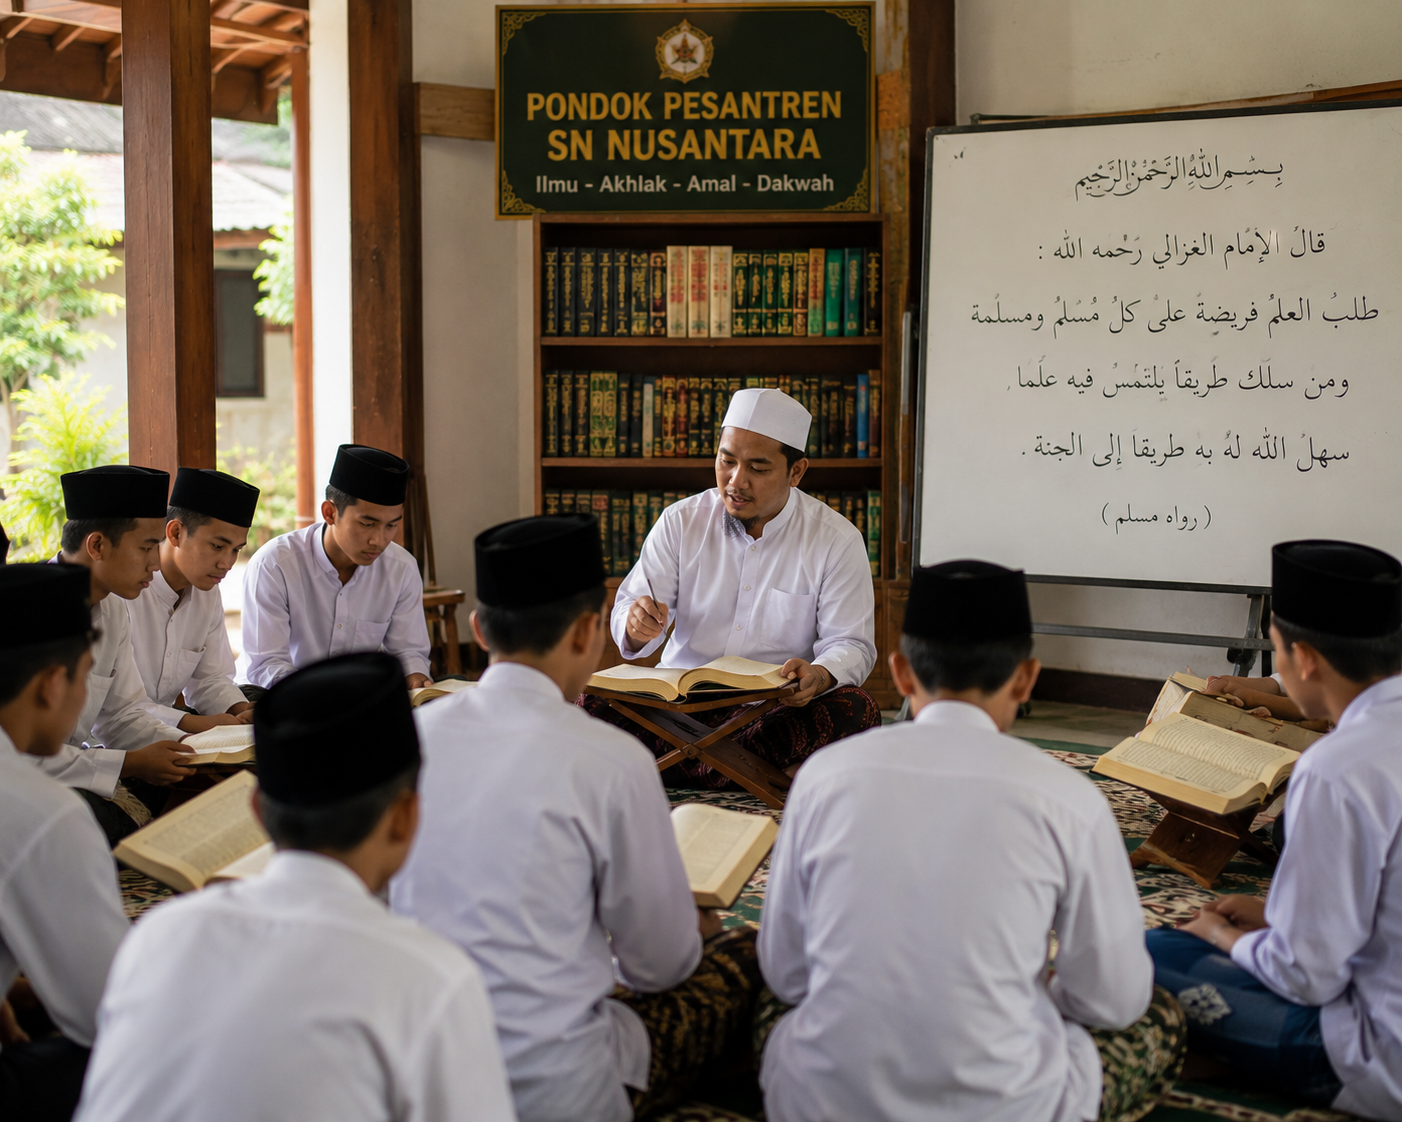 PONDOK PESANTREN
SN NUSANTARA
Ilmu - Akhlak - Amal - Dakwah
بِسْمِ اللّٰهِ الرَّحْمٰنِ الرَّحِيْمِ
قالُ الإمام الغزالي رَحْمه الله :
طلبُ العلمُ فريضةً علىُ كلُ مُسُلمُ ومسلّمة
ومن سلَك طَريقاً يلتَمسُ فيه علَما
سهلُ الله لهُ به طريقاَ إلى الجنة .
( رواه مسلم )